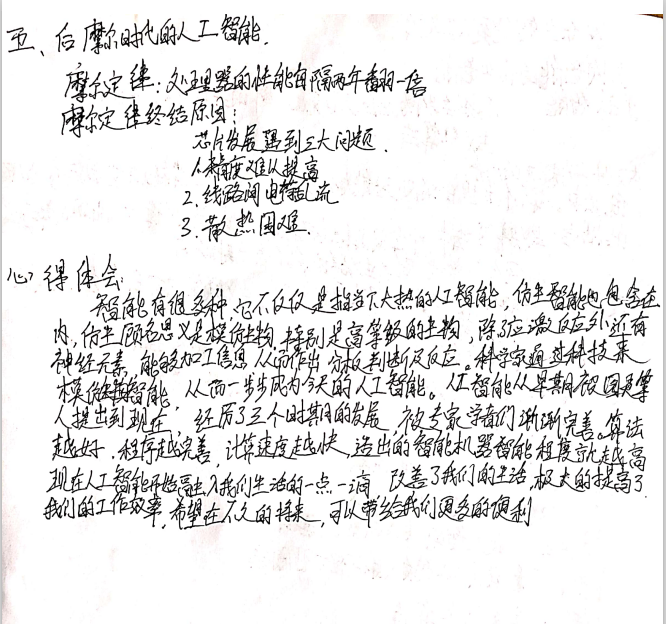 五、后摩尔时代的人工智能.
摩尔定律:处理器的性能每隔两年翻一倍
摩尔定律终结原因:
芯片发展遇到三大问题.
1.精度难以提高
2.线路间电荷乱流
3.散热困难.
心得体会:
智能有很多种,它不仅仅是指当下大热的人工智能,仿生智能也包含在
内,仿生顾名思义是模仿生物,特别是高等级的生物,除了应激反应外,还有
神经元素,能够加工信息,从而作出分析判断及反应。科学家通过科技来
模仿智能,从而一步步成为今天的人工智能。人工智能从早期被图灵等
人提出到现在,经历了三个时期的发展,被专家学者们渐渐完善。算法
越好,程序越完善,计算速度越快,造出的智能机器智能程度就越高
现在人工智能开始融入我们生活的一点一滴 改善了我们的生活,极大的提高了
我们的工作效率,希望在不久的将来,可以带给我们更多的便利